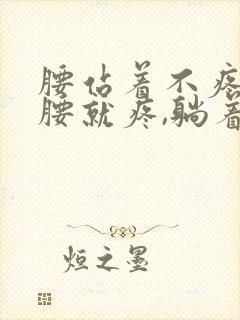 腰佔着不疼
腰就疼,躺着
烜之墨